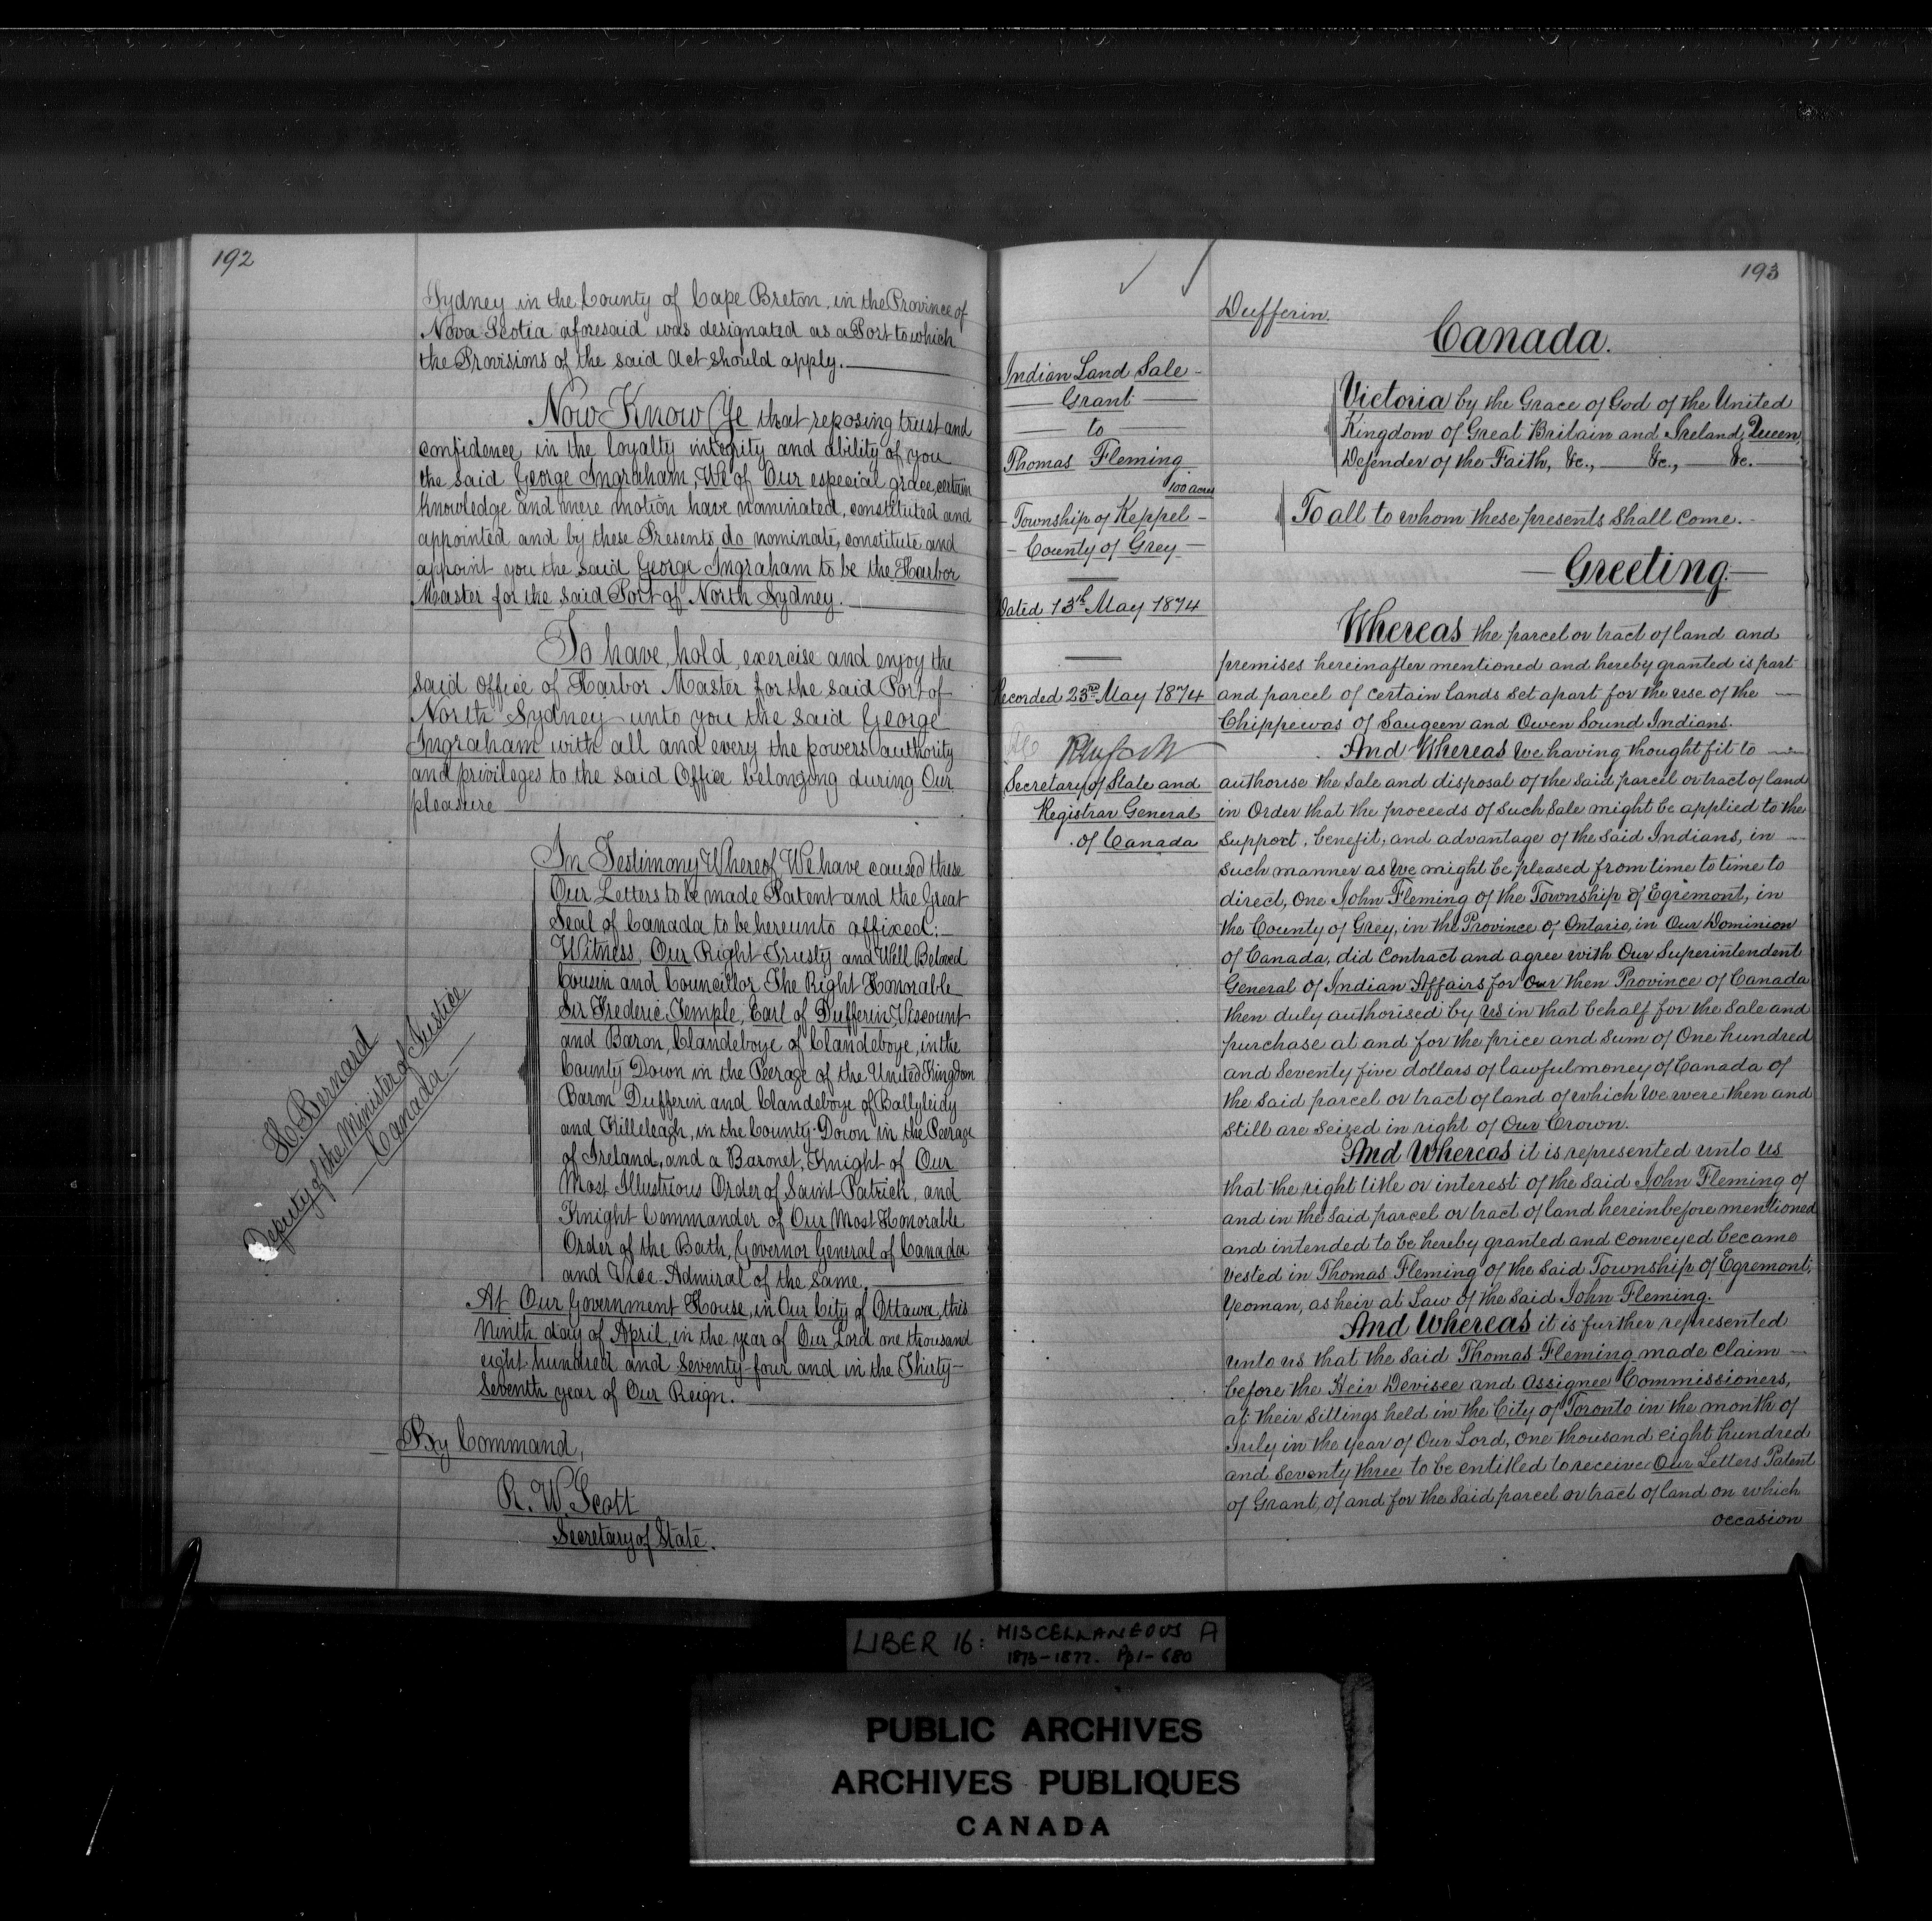 192
Sydney in the County of Cape Breton, in the Province of
Nova Scotia aforesaid was designated as a Port to which
the Provisions of the said Act should apply.
Now Know Ye that reposing trust and
confidence in the loyalty integrity and ability of you
the said George Ingraham, We of Our especial grace, certain
knowledge and mere motion have nominated, constituted and
appointed and by these Presents do nominate, constitute and
appoint you the said George Ingraham to be the Harbor
Master for the said Port of North Sydney.
To have, hold, exercise and enjoy the
said office of Harbor Master for the said Port of
North Sydney unto you the said George
Ingraham with all and every the powers authority
and privileges to the said Office belonging during Our
pleasure
In Testimony Whereof We have caused these
Our Letters to be made Patent and the Great
Seal of Canada to be hereunto affixed:—
Witness, Our Right Trusty and Well Beloved
Cousin and Councillor The Right Honorable
Sir Frederic Temple, Earl of Dufferin, Viscount
and Baron, Clandeboye of Clandeboye, in the
County Down in the Peerage of the United Kingdom
Baron Dufferin and Clandeboye of Ballyleidy
and Killeleagh, in the County Down in the Peerage
of Ireland, and a Baronet, Knight of Our
Most Illustrious Order of Saint Patrick, and
Knight Commander of Our Most Honorable
Order of the Bath, Governor General of Canada
and Vice-Admiral of the same.
At Our Government House, in Our City of Ottawa, this
Ninth day of April, in the year of Our Lord one thousand
eight hundred and seventy-four and in the Thirty-
Seventh year of Our Reign.
By Command,
R. W. Scott
Secretary of State.
H. Bernard
Deputy of the Minister of Justice
Canada
193
Dufferin.
Canada.
Indian Land Sale
Grant
to
Thomas Fleming
100 acres
Township of Keppel
County of Grey
Dated 13th May 1874
Recorded 23rd May 1874
Secretary of State and
Registrar General
of Canada
Victoria by the Grace of God of the United
Kingdom of Great Britain and Ireland, Queen,
Defender of the Faith, &c., — &c., — &c.
To all to whom these presents shall come.
Greeting.
Whereas the parcel or tract of land and
premises hereinafter mentioned and hereby granted is part
and parcel of certain lands set apart for the use of the
Chippewas of Saugeen and Owen Sound Indians.
And Whereas We having thought fit to
authorise the sale and disposal of the said parcel or tract of land
in Order that the proceeds of such sale might be applied to the
support, benefit, and advantage of the said Indians, in
such manner as We might be pleased from time to time to
direct, one John Fleming of the Township of Egremont, in
the County of Grey, in the Province of Ontario, in Our Dominion
of Canada, did contract and agree with Our Superintendent
General of Indian Affairs for Our then Province of Canada
then duly authorised by us in that behalf for the sale and
purchase at and for the price and sum of One hundred
and seventy five dollars of lawful money of Canada of
the said parcel or tract of land of which We were then and
still are seized in right of Our Crown.
And Whereas it is represented unto us
that the right title or interest of the said John Fleming of
and in the said parcel or tract of land hereinbefore mentioned
and intended to be hereby granted and conveyed became
vested in Thomas Fleming of the said Township of Egremont,
Yeoman, as heir at Law of the said John Fleming.
And Whereas it is further represented
unto us that the said Thomas Fleming made claim
before the Heir Devisee and Assignee Commissioners,
at their sittings held in the City of Toronto in the month of
July in the year of Our Lord, one thousand eight hundred
and seventy three to be entitled to receive Our Letters Patent
of Grant, of and for the said parcel or tract of land on which
occasion
LIBER 16: MISCELLANEOUS A
1873-1877. Pp 1-680
PUBLIC ARCHIVES
ARCHIVES PUBLIQUES
CANADA